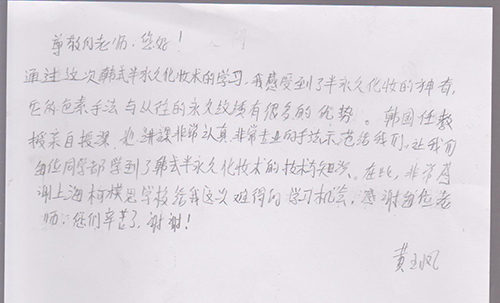 尊敬的老师,您好!
通过这次韩式半永久化妆术的学习,我感受到了半永久化妆的神奇,
它的包素手法与以往的永久纹绣有很多的优势。韩国任教
授亲自授课,他讲课非常认真,非常专业的手法示范给我们,让我们
每位同学都学到了韩式半永久化妆术的技术与知识。在此,非常感
谢上海柯模思学校给我这次难得的学习机会,感谢每位老
师:您们辛苦了,谢谢!
黄玉凤